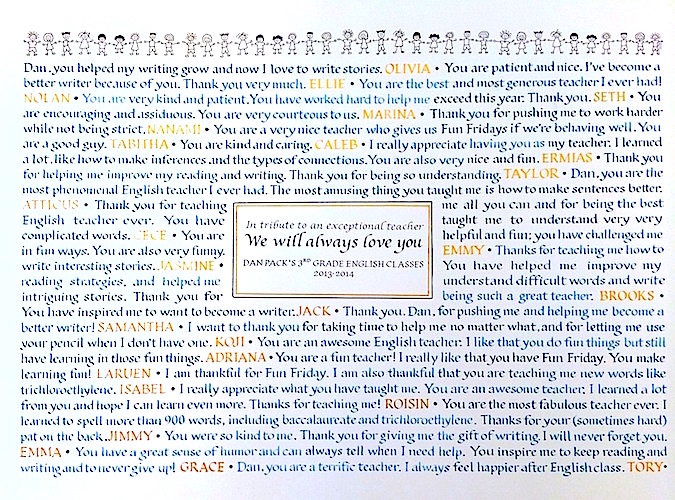 Dan, you helped my writing grow and now I love to write stories. OLIVIA • You are patient and nice. I've become a
better writer because of you. Thank you very much. ELLIE • You are the best and most generous teacher I ever had!
NOLAN • You are very kind and patient. You have worked hard to help me exceed this year. Thank you. SETH • You
are encouraging and assiduous. You are very courteous to us. MARINA • Thank you for pushing me to work harder
while not being strict. NANAMI • You are a very nice teacher who gives us Fun Fridays if we're behaving well. You
are a good guy. TABITHA • You are kind and caring. CALEB • I really appreciate having you as my teacher. I learned
a lot, like how to make inferences and the types of connections. You are also very nice and fun. ERMIAS • Thank you
for helping me improve my reading and writing. Thank you for being so understanding. TAYLOR • Dan, you are the
most phenomenal English teacher I ever had. The most amusing thing you taught me is how to make sentences better.
ATTICUS • Thank you for teaching me all you can and for being the best
English teacher ever. You have taught me to understand very very
complicated words. CECE • You are helpful and fun; you have challenged me
in fun ways. You are also very funny. EMMY • Thanks for teaching me how to
write interesting stories. JASMINE • You have helped me improve my
reading strategies, and helped me understand difficult words and write
intriguing stories. Thank you for being such a great teacher. BROOKS •
In tribute to an exceptional teacher
We will always love you
DAN PACK'S 3RD GRADE ENGLISH CLASSES
2013-2014
You have inspired me to want to become a writer. JACK • Thank you, Dan, for pushing me and helping me become a
better writer! SAMANTHA • I want to thank you for taking time to help me no matter what, and for letting me use
your pencil when I don't have one. KOJI • You are an awesome English teacher. I like that you do fun things but still
have learning in those fun things. ADRIANA • You are a fun teacher! I really like that you have Fun Friday. You make
learning fun! LARUEN • I am thankful for Fun Friday. I am also thankful that you are teaching me new words like
trichloroethylene. ISABEL • I really appreciate what you have taught me. You are an awesome teacher; I learned a lot
from you and hope I can learn even more. Thanks for teaching me! ROISIN • You are the most fabulous teacher ever. I
learned to spell more than 900 words, including baccalaureate and trichloroethylene. Thanks for your (sometimes hard)
pat on the back. JIMMY • You were so kind to me. Thank you for giving me the gift of writing. I will never forget you.
EMMA • You have a great sense of humor and can always tell when I need help. You inspire me to keep reading and
writing and to never give up! GRACE • Dan, you are a terrific teacher. I always feel happier after English class. TORY•